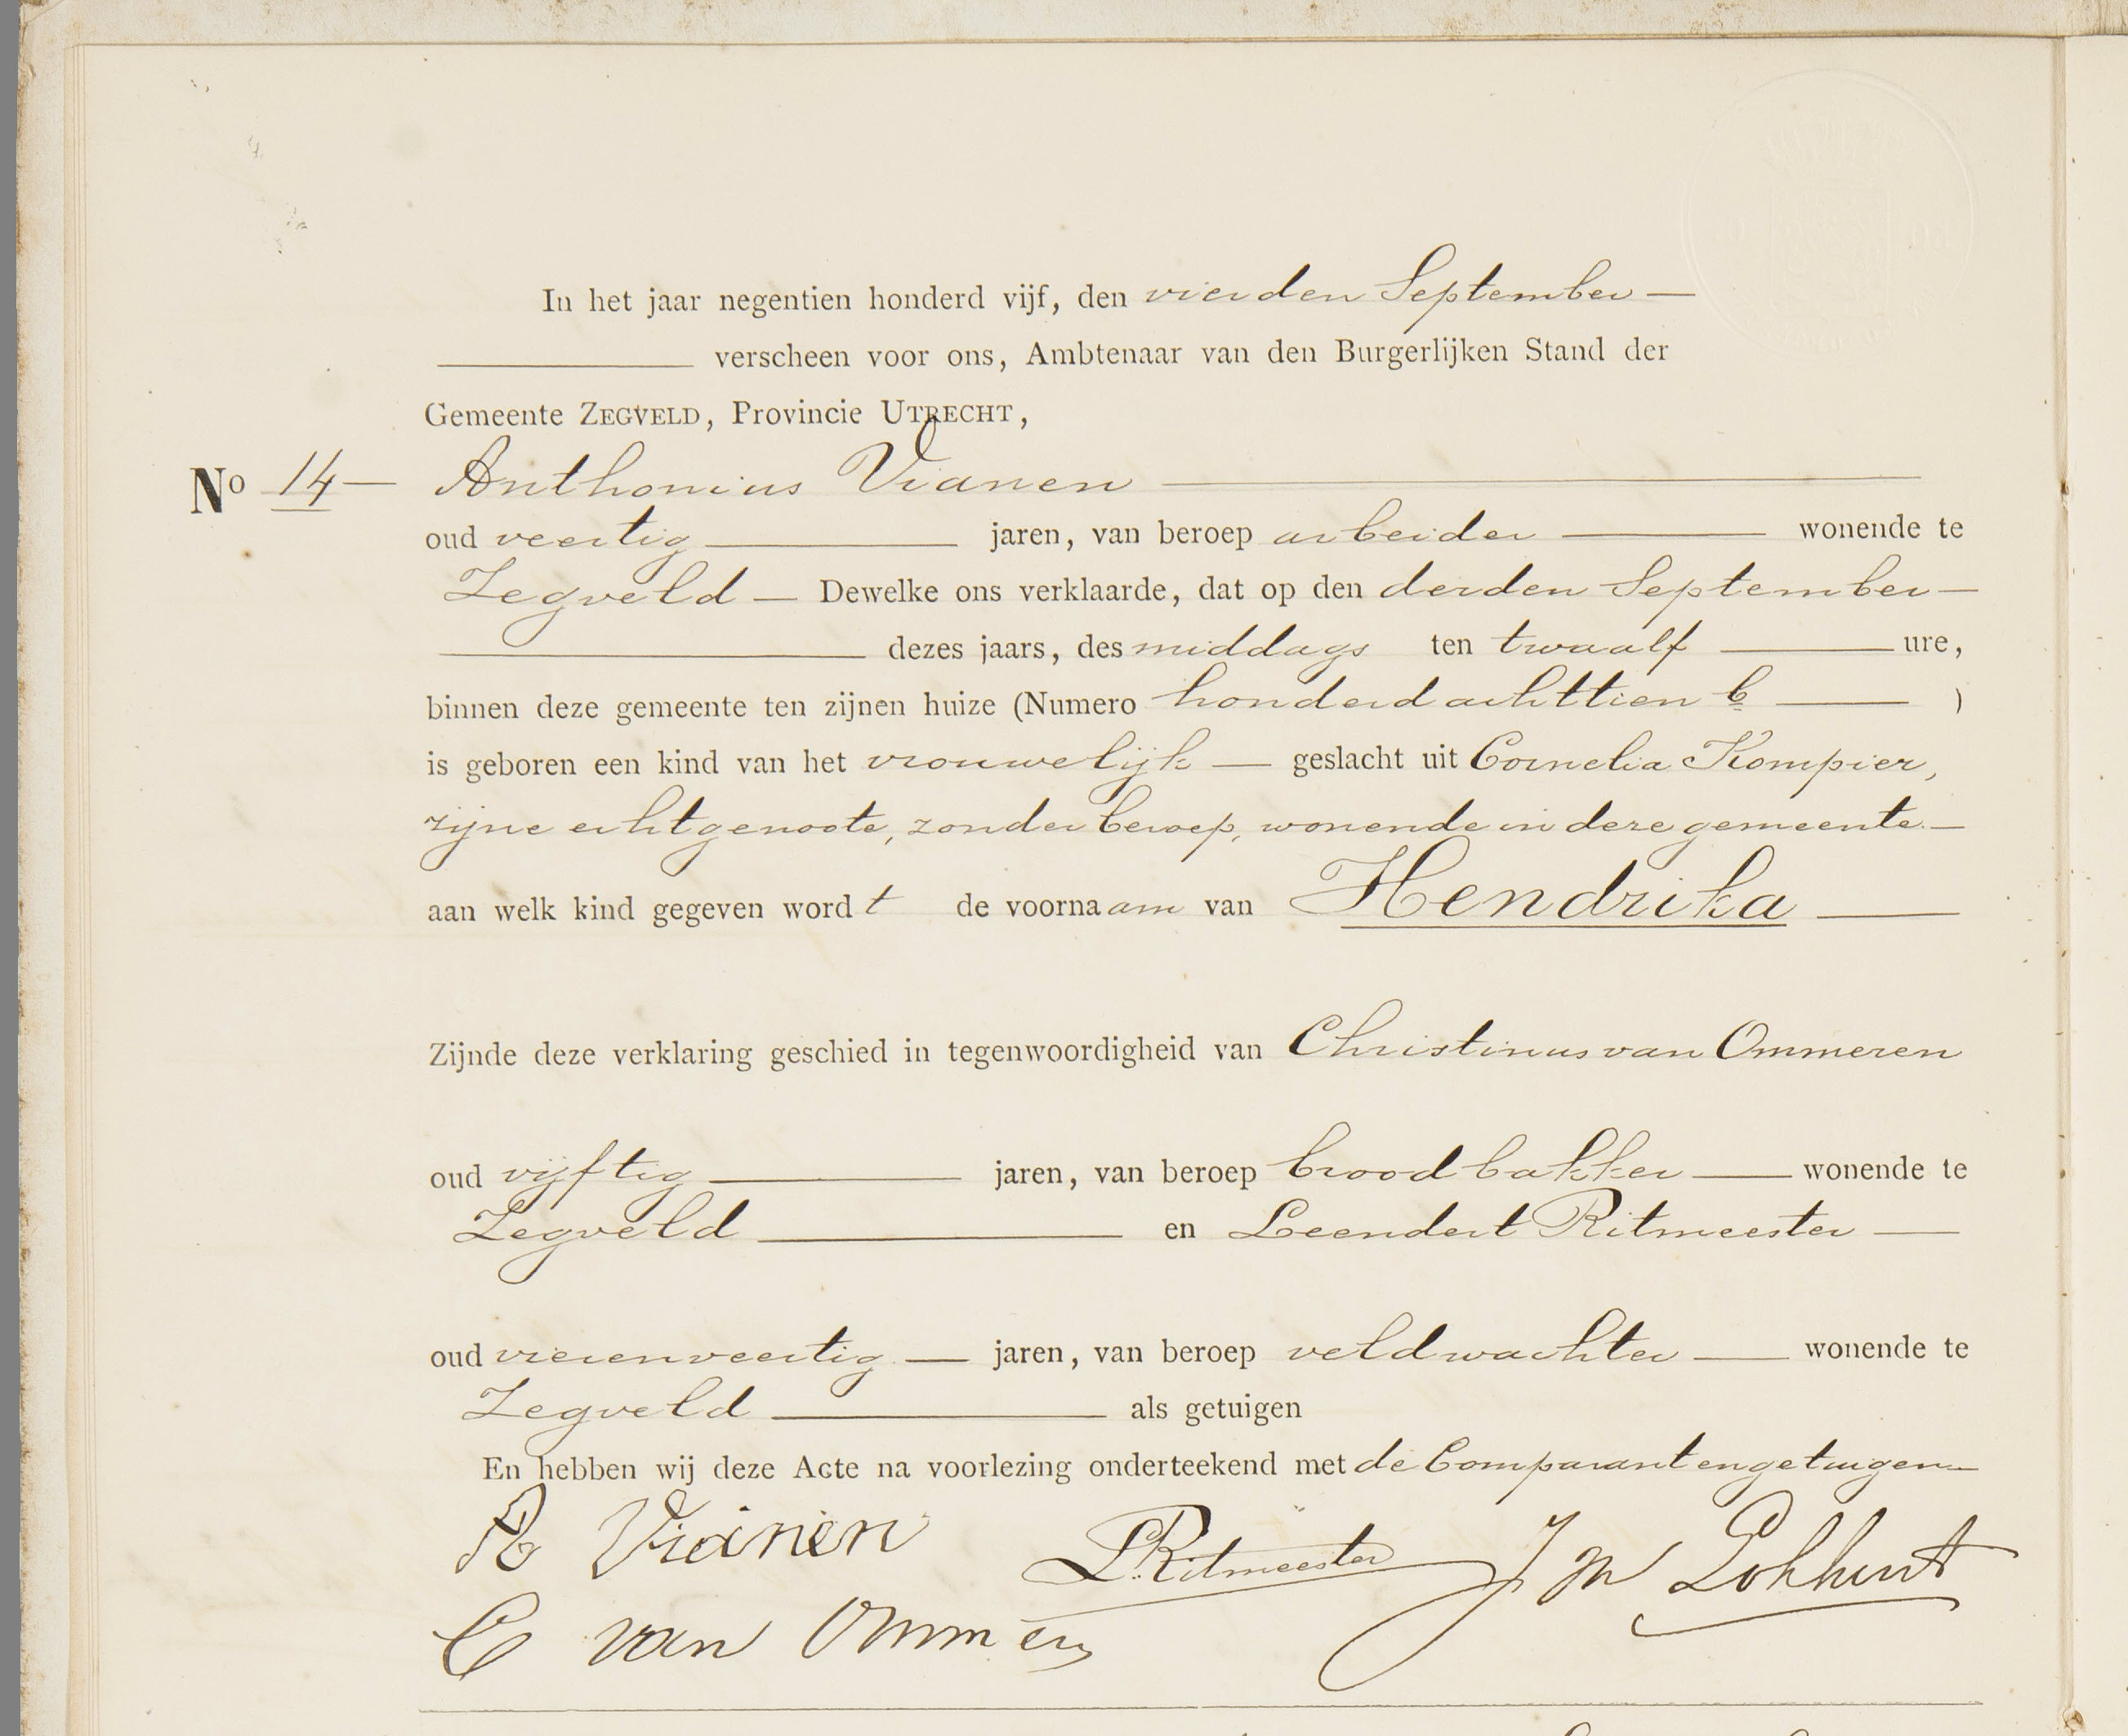 In het jaar negentien honderd vijf, den vierden September
verscheen voor ons, Ambtenaar van den Burgerlijken Stand der
Gemeente ZEGVELD, Provincie UTRECHT,
No 14 Anthonius Vianen
oud veertig jaren, van beroep arbeider wonende te
Zegveld Dewelke ons verklaarde, dat op den derden September
dezes jaars, des middags ten twaalf ure,
binnen deze gemeente ten zijnen huize (Numero honderdachttien b )
is geboren een kind van het vrouwelijk geslacht uit Cornelia Kompier,
zijne echtgenoote, zonder beroep, wonende in deze gemeente
aan welk kind gegeven wordt de voornaam van Hendrika
Zijnde deze verklaring geschied in tegenwoordigheid van Christinus van Ommeren
oud vijftig jaren, van beroep broodbakker wonende te
Zegveld en Leendert Ritmeester
oud vierenveertig jaren, van beroep veldwachter wonende te
Zegveld als getuigen
En hebben wij deze Acte na voorlezing onderteekend met de Comparant en getuigen
A Vianen L. Ritmeester
C van Ommeren